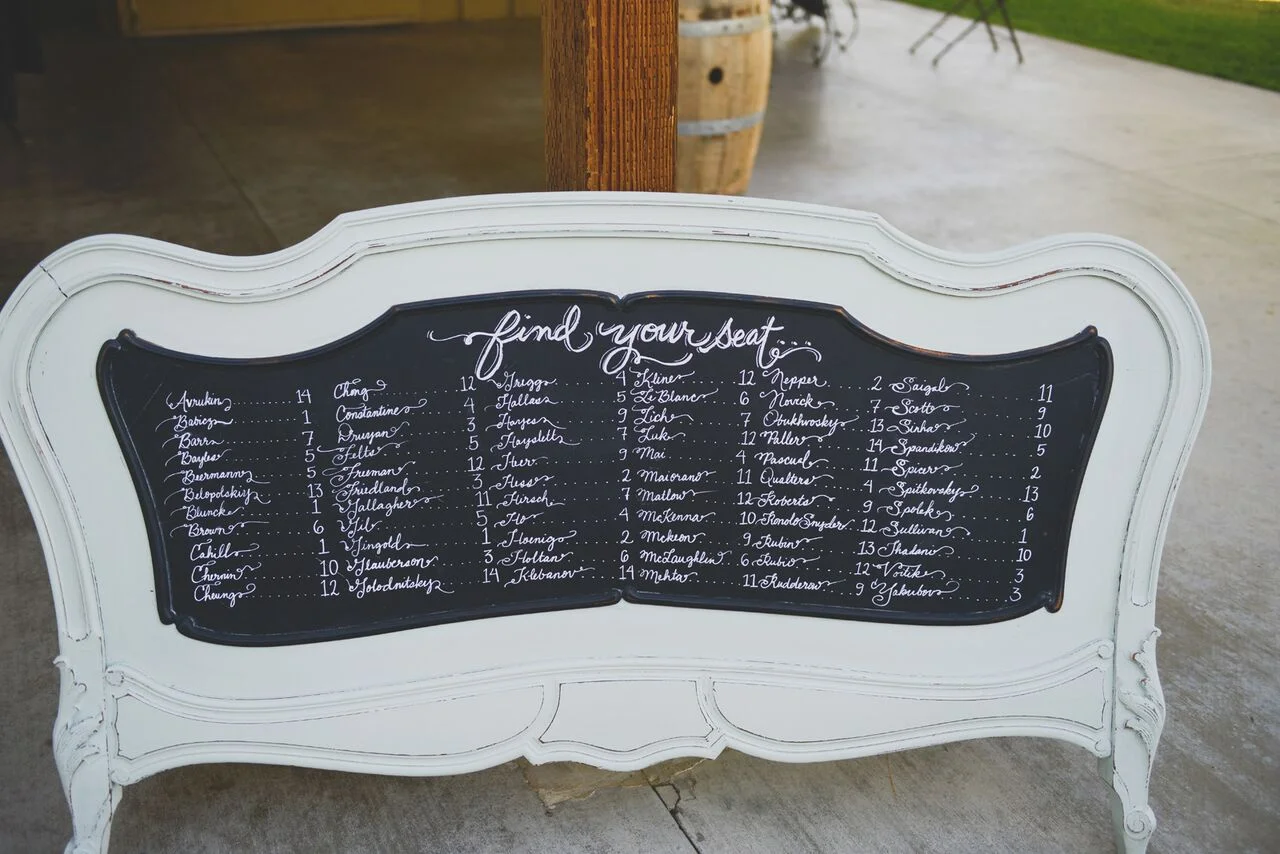 find your seat...
Avrukin 14
Babics 1
Barr 7
Bayles 5
Beermann 5
Belopolskiy 13
Bluncke 1
Brown 6
Cahill 1
Chernin 10
Cheung 12
Chong 12
Constantine 4
Druyan 3
Felts 5
Freeman 12
Friedland 3
Gallagher 11
Gil 5
Gingold 1
Glauberson 3
Golodnitsky 14
Griggs 4
Hallas 5
Hayes 9
Hayslett 7
9
Hess 2
Hirsch 7
Ho 4
Hoenig 2
Holtan 6
Klebanov 14
Kline 12
LeBlanc 6
Lich 7
Luk 12
Mai 4
Maiorano 11
Matlow 12
McKenna 10
McKeon 9
McLaughlin 6
Mehta 11
Nepper 2
Novick 7
Oboukhovsky 13
Paller 14
Pascual 11
Qualters 4
Roberts 9
Rondo Snyder 12
Rubin 13
Rubio 12
Rudderow 9
Saigal 11
Scott 9
Sinha 10
Spandikow 5
Spicer 2
Spitkovsky 13
Spolek 6
Sullivan 1
Thadani 10
Voitik 3
Yakubov 3